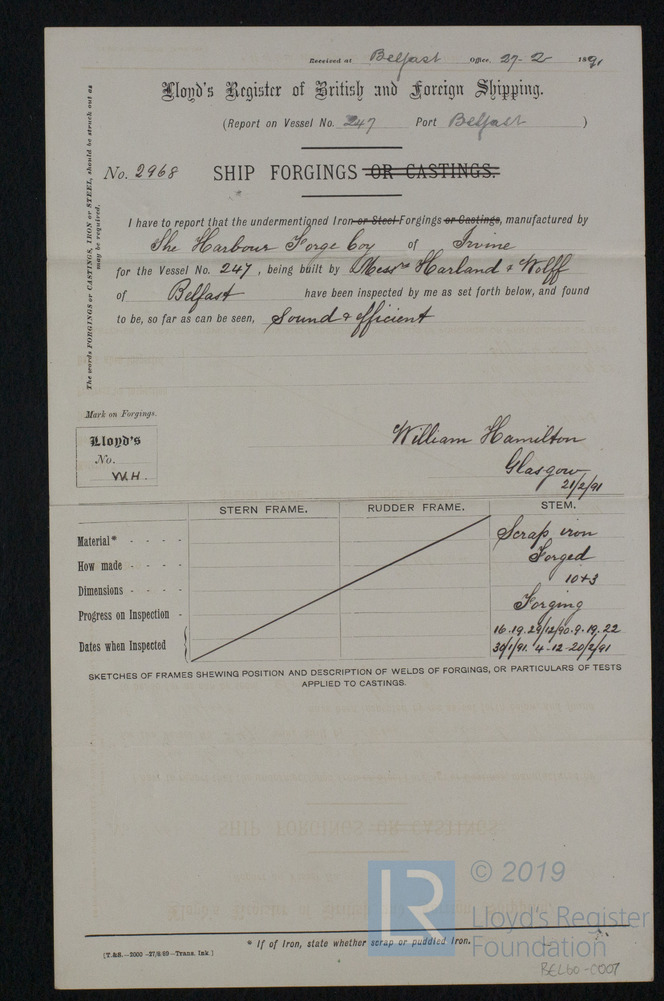 Received at Belfast Office, 27-2- 1891
Lloyd's Register of British and Foreign Shipping.
(Report on Vessel No. 247 Port Belfast )
No. 2968 SHIP FORGINGS OR CASTINGS.
The words FORGINGS or CASTINGS, IRON or STEEL, should be struck out as
may be required.
I have to report that the undermentioned Iron or Steel Forgings or Castings, manufactured by
The Harbour Forge Coy of Irvine
for the Vessel No. 247, being built by Messrs Harland & Wolff
of Belfast have been inspected by me as set forth below, and found
to be, so far as can be seen, Sound & Efficient
Mark on Forgings.
Lloyd's
No.
W.H.
William Hamilton
Glasgow
21/2/91
STERN FRAME. RUDDER FRAME. STEM.
Material* - - - - Scrap iron
How made - - - - Forged
Dimensions - - - - 10+3
Progress on Inspection - Forging
Dates when Inspected 16.19.29/12/90.9.19.22
30/1/91. 4-12-20/2/91
SKETCHES OF FRAMES SHEWING POSITION AND DESCRIPTION OF WELDS OF FORGINGS, OR PARTICULARS OF TESTS
APPLIED TO CASTINGS.
* If of Iron, state whether scrap or puddled iron.
[T.&S.—2000 —27/8/89—Trans. Ink.]
LR
© 2019
Lloyd's Register
Foundation
BEL60-C007